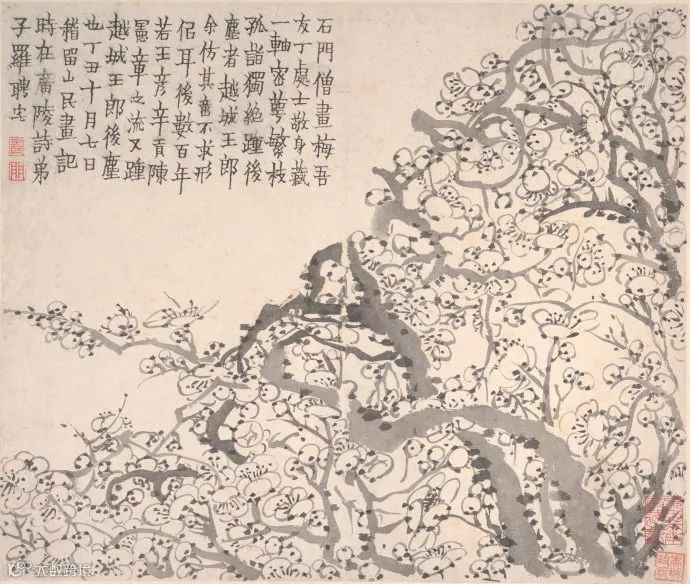 石門僧畫梅吾
友丁處士敬身藏
一軸密萼繁枝
孤詣獨絕踵後
塵者越城王郎
余仿其意不求形
侣耳後數百年
若王彥辛貢陳
憲章之流又踵
越城王郎後塵
也丁丑十月七日
稽留山民畫記
時在廣陵詩弟
子羅聘宅
大数跨境